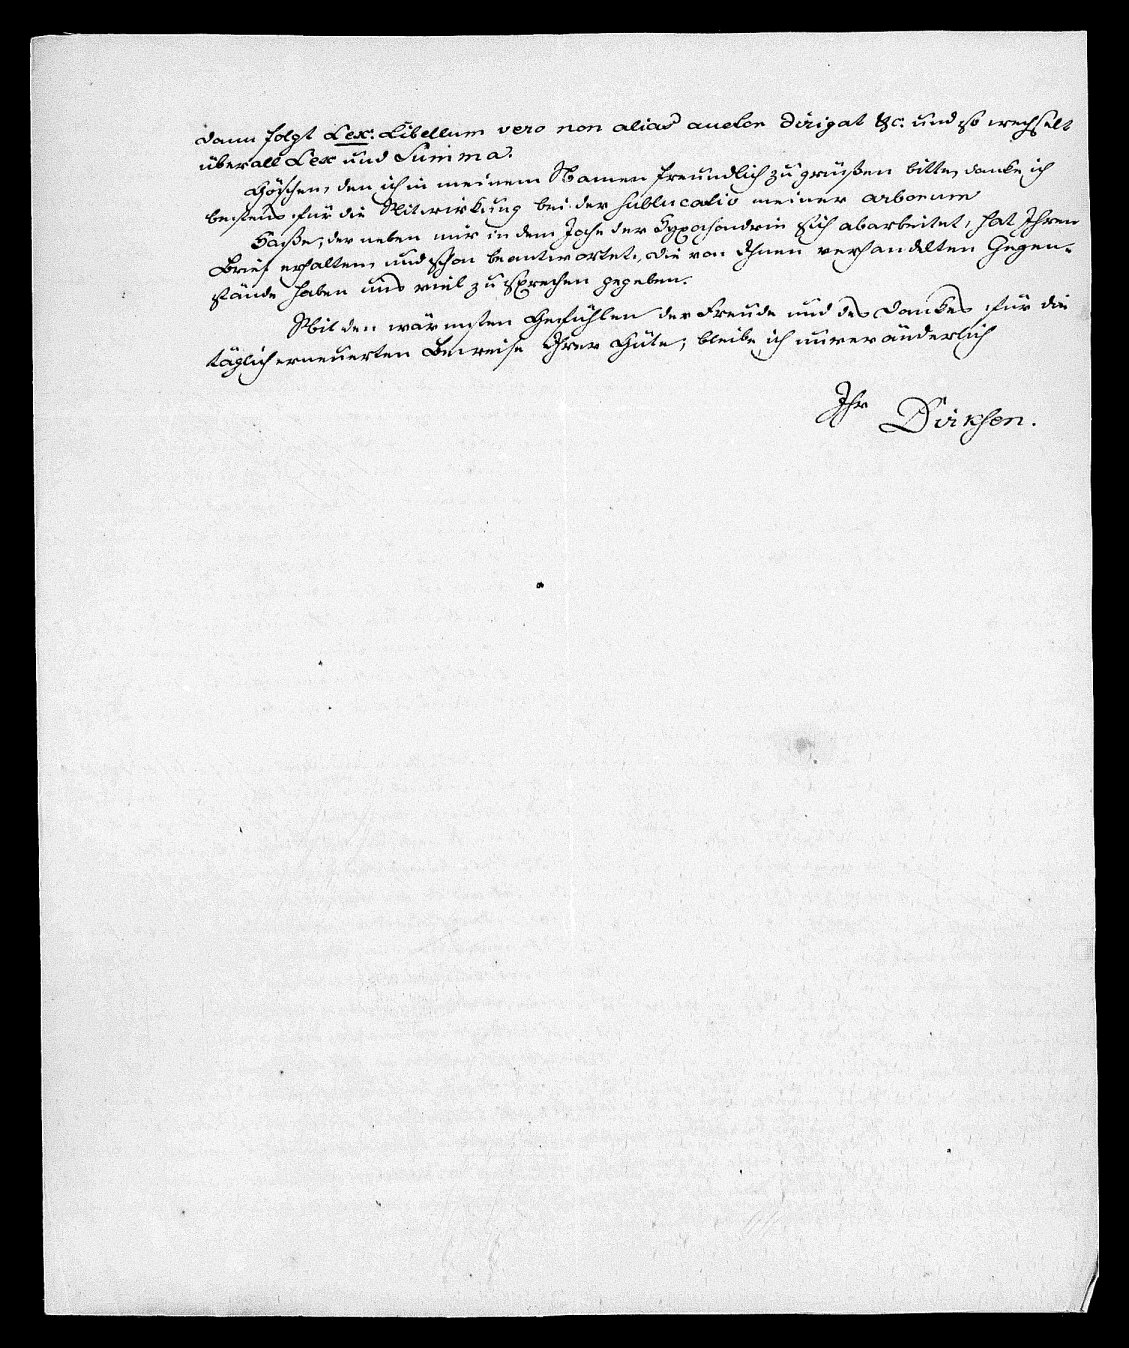 dann folgt Lex: Libellum vero non alias auctor dirigat &c. und so wechselt
überall Lex und Summa.
Göschen, den ich in meinem Namen freundlich zu grüßen bitte, danke ich
bestens für die Mitwirkung bei der sublucatio meiner arborum
Hasse, der neben mir in dem Joche der Hypochondrie sich abarbeitet, hat Ihren
Brief erhalten, und schon beantwortet, die von Ihnen verhandelten Gegen-
stände haben uns viel zu sprechen gegeben.
Mit den wärmsten Gefühlen der Freude und des Dankes für die
täglich erneuerten Beweise Ihrer Güte, bleibe ich unveränderlich
Ihr Dirksen.